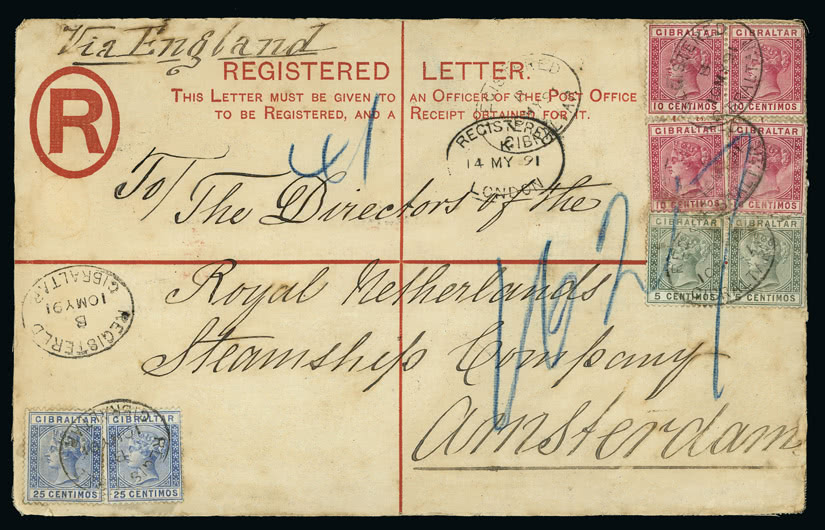 Via England
R
REGISTERED LETTER.
THIS LETTER MUST BE GIVEN TO AN OFFICER OF THE POST OFFICE
TO BE REGISTERED, AND A RECEIPT OBTAINED FOR IT.
GIBRALTAR GIBRALTAR
10 CENTIMOS 10 CENTIMOS
GIBRALTAR GIBRALTAR
10 CENTIMOS 10 CENTIMOS
GIBRALTAR GIBRALTAR
5 CENTIMOS 5 CENTIMOS
REGISTERED
GIBRALTAR
REGISTERED
K
14 MY 91
LONDON
To/ The Directors of the
Royal Netherlands
Steamship Company
Amsterdam
162
REGISTERED
B
10 MY 91
GIBRALTAR
GIBRALTAR GIBRALTAR
25 CENTIMOS 25 CENTIMOS